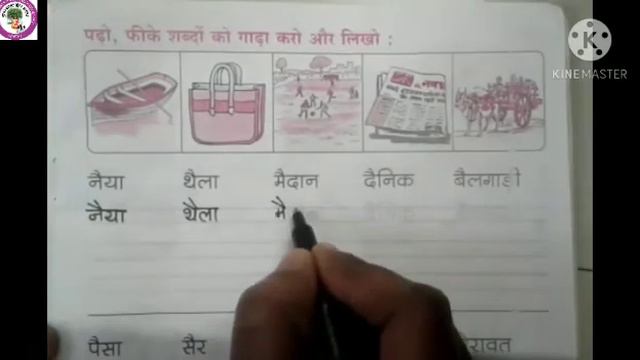 पढ़ो, फीके शब्दों को गाढ़ा करो और लिखो :
KINEMASTER
नैया थैला मैदान दैनिक बैलगाड़ी
नैया थैला मै
पैसा सैर